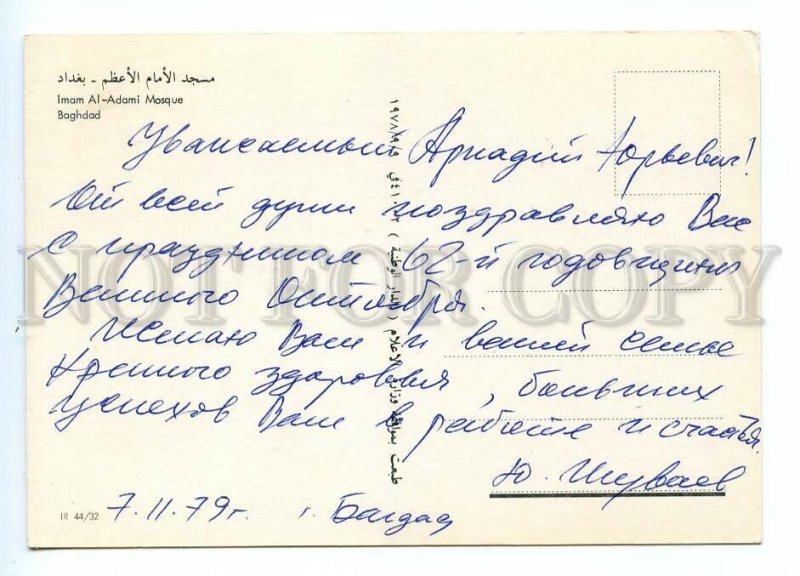 مسجد الأمام الأعظم - بغداد
Imam Al-Adami Mosque
Baghdad
Уважаемый Аркадий Юрьевич!
От всей души поздравляю Вас
с праздником 62-й годовщины
Великого Октября.
Желаю Вам и вашей семье
крепкого здоровья, больших
успехов Вам в работе и счастья.
Ю. Шуваев
7.11.79г. г. Багдад
IR 44/32
طبعت بموافقة وزارة الاعلام
NOT FOR COPY